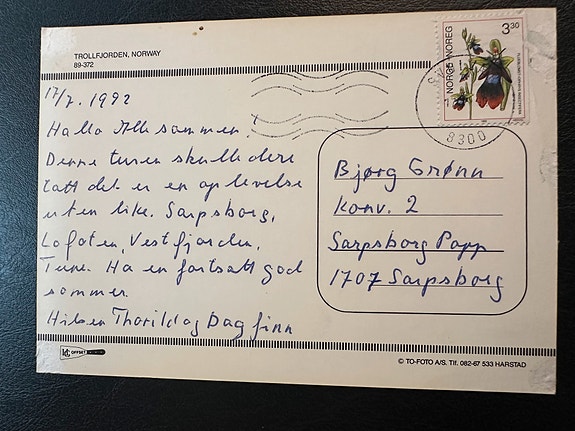 TROLLFJORDEN, NORWAY
89-372
NOREG
NORGE
3.30
8300
17/7. 1992
Hallo Alle sammen.
Denne turen skulle dere
tatt det er en oplevelse
uten like. Sarpsborg,
Lofoten, Vestfjorden,
Tune. Ha en fortsatt god
sommer.
Hilsen Thorild og Dag finn
Bjørg Grønn
Konv. 2
Sarpsborg Papp
1707 Sarpsborg
OFFSET
© TO-FOTO A/S. Tlf. 082-67 533 HARSTAD